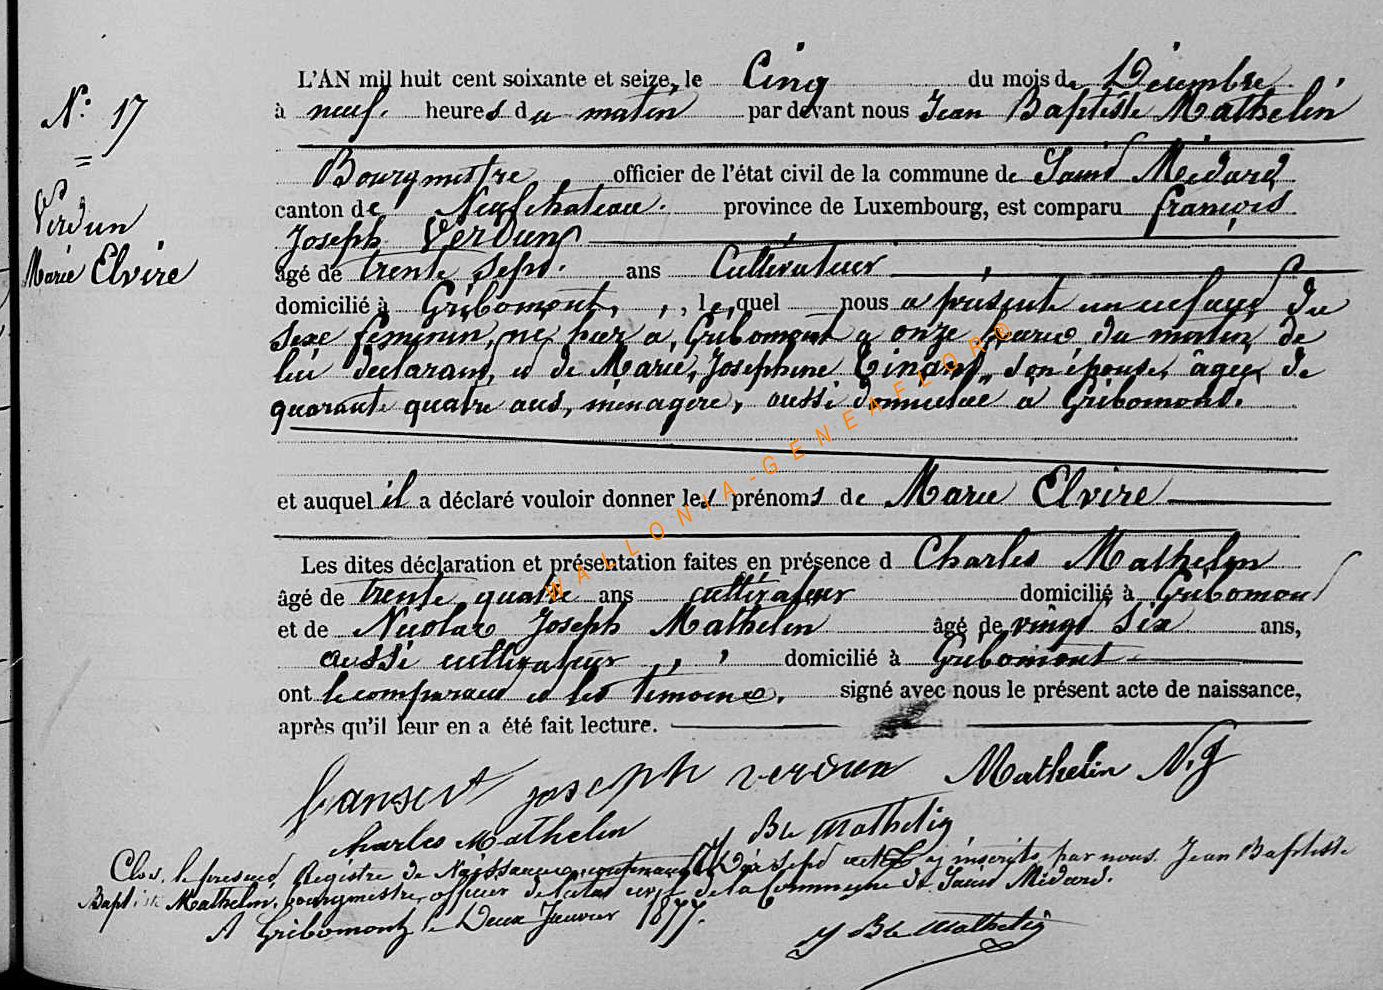 L'AN mil huit cent soixante et seize, le Cinq du mois de Décembre
N° 17
à neuf heures du matin par devant nous Jean Baptiste Mathelin
Bourgmestre officier de l'état civil de la commune de Saint Médard
canton de Neufchateau. province de Luxembourg, est comparu françois
Verdun
Joseph Verdun
Marie Elvire
âgé de trente sept. ans Cultivateur
domicilié à Gribomont, , , lequel nous a présenté un enfant du
sexe féminin, né hier a Gribomont a onze heures du matin, de
lui déclarant, et de Marie, Josephine Tinant, son épouse, âgée de
quarante quatre ans, ménagère, aussi domiciliée à Gribomont.
et auquel il a déclaré vouloir donner les prénoms de Marie Elvire
Les dites déclaration et présentation faites en présence d Charles Mathelin
âgé de trente quatre ans cultivateur domicilié à Gribomont
et de Nicolas Joseph Mathelin âgé de vingt six ans,
aussi cultivateur , , domicilié à Gribomont
ont le comparant et les témoins, signé avec nous le présent acte de naissance,
après qu'il leur en a été fait lecture.
joseph verdun Mathelin N.j
Charles Mathelin J Bte Mathelin
Clos, le présent Registre de Naissances, contenant dix sept actes y inscrits par nous Jean Baptiste
Baptiste Mathelin, bourgmestre officier de l'état civil de la Commune de Saint Médard.
A Gribomont, le Deux Janvier 1877.
J Bte Mathelin
WALLONIA-GENEAFLOR©